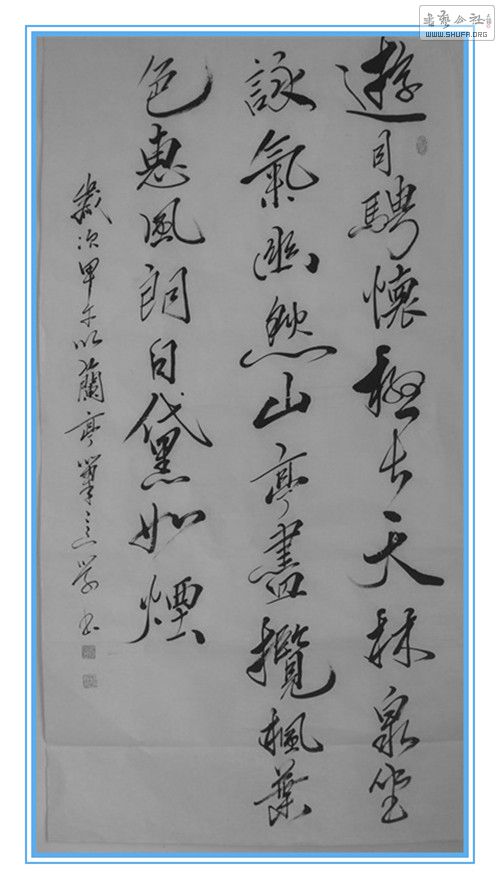 遊目騁懷極長天林泉坐
詠氣幽然山亭盡攬楓葉
色惠風朗日黛如煙
歲次甲午以蘭亭筆意學書
書藝公社
WWW.SHUFA.ORG